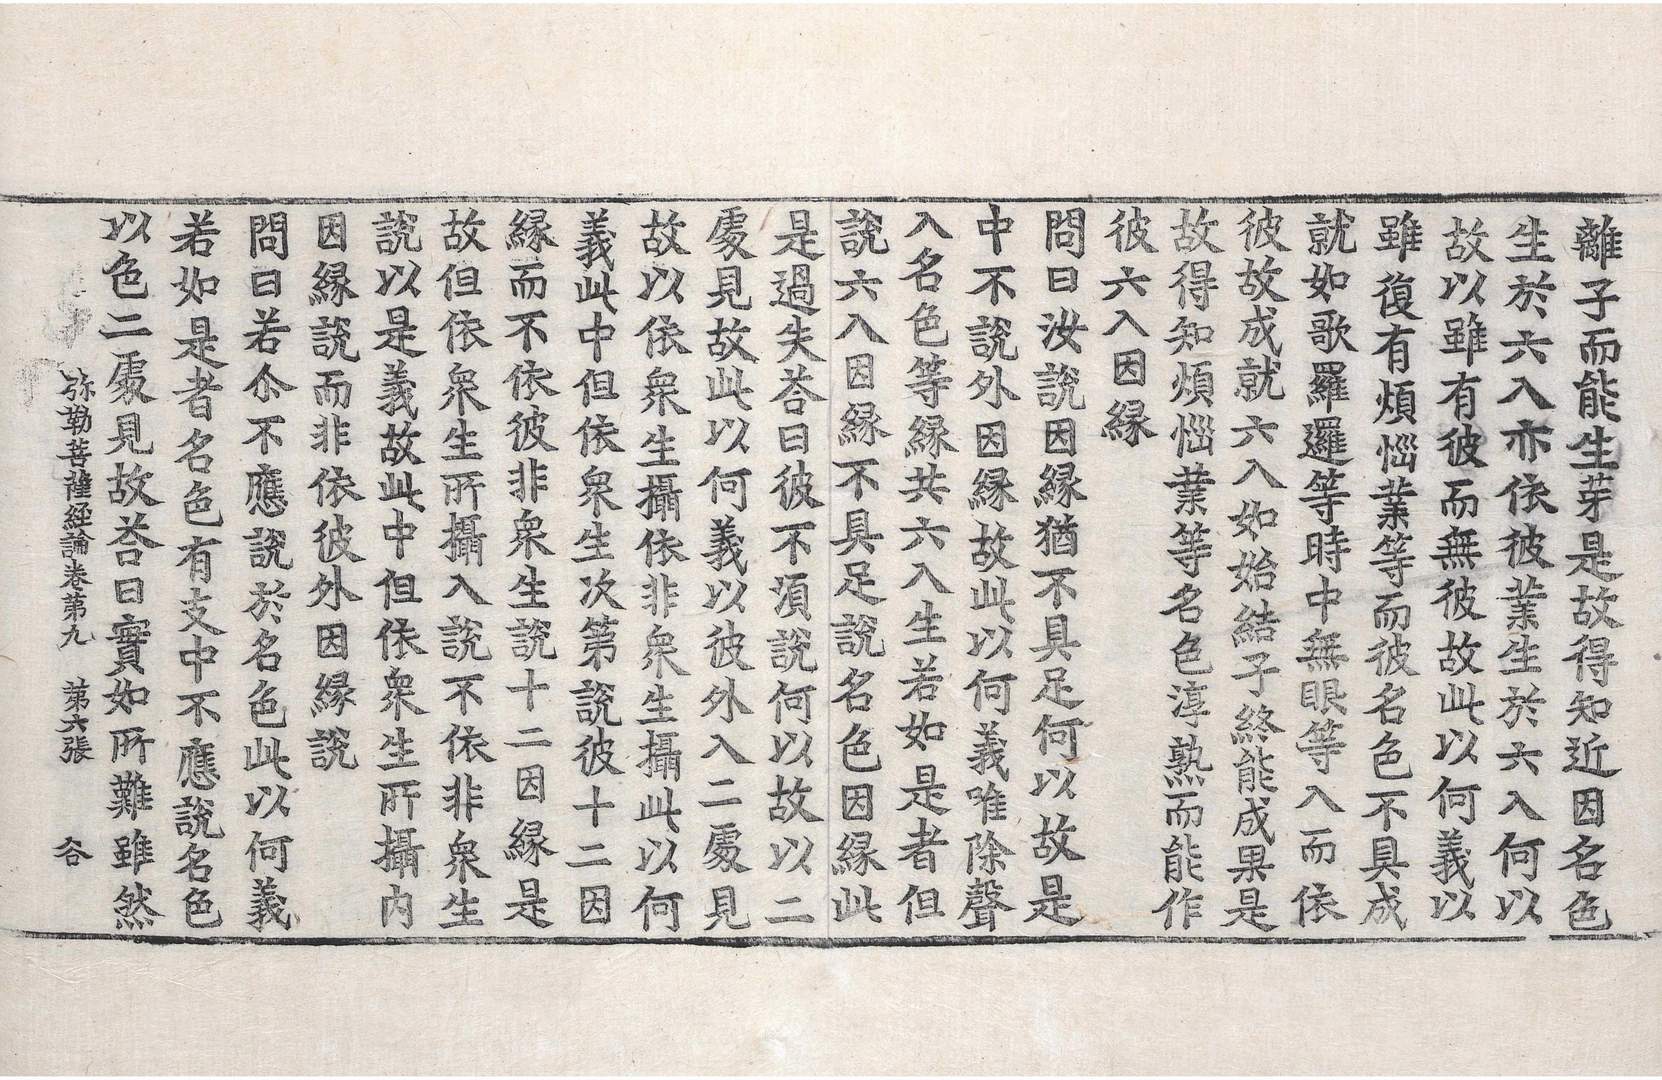 離子而能生芽是故得知近因名色
生於六入亦依彼業生於六入何以
故以雖有彼而無彼故此以何義以
雖復有煩惱業等而彼名色不具成
就如歌羅邏等時中無眼等入而依
彼故成就六入如始結子終能成果是
故得知煩惱業等名色淳熟而能作
彼六入因緣
問曰汝說因緣猶不具足何以故是
中不說外因緣故此以何義唯除聲
入名色等緣共六入生若如是者但
說六入因緣不具足說名色因緣此
是過失荅曰彼不湏說何以故以二
處見故此以何義以彼外入二處見
故以依衆生攝依非衆生攝此以何
義此中但依衆生次第說彼十二因
緣而不依彼非衆生說十二因緣是
故但依衆生所攝入說不依非衆生
說以是義故此中但依衆生所攝內
因緣說而非依彼外因緣說
問曰若尒不應說於名色此以何義
若如是者名色有支中不應說名色
以色二處見故荅曰實如所難雖然
弥勒菩薩經論卷第九 第六張 谷